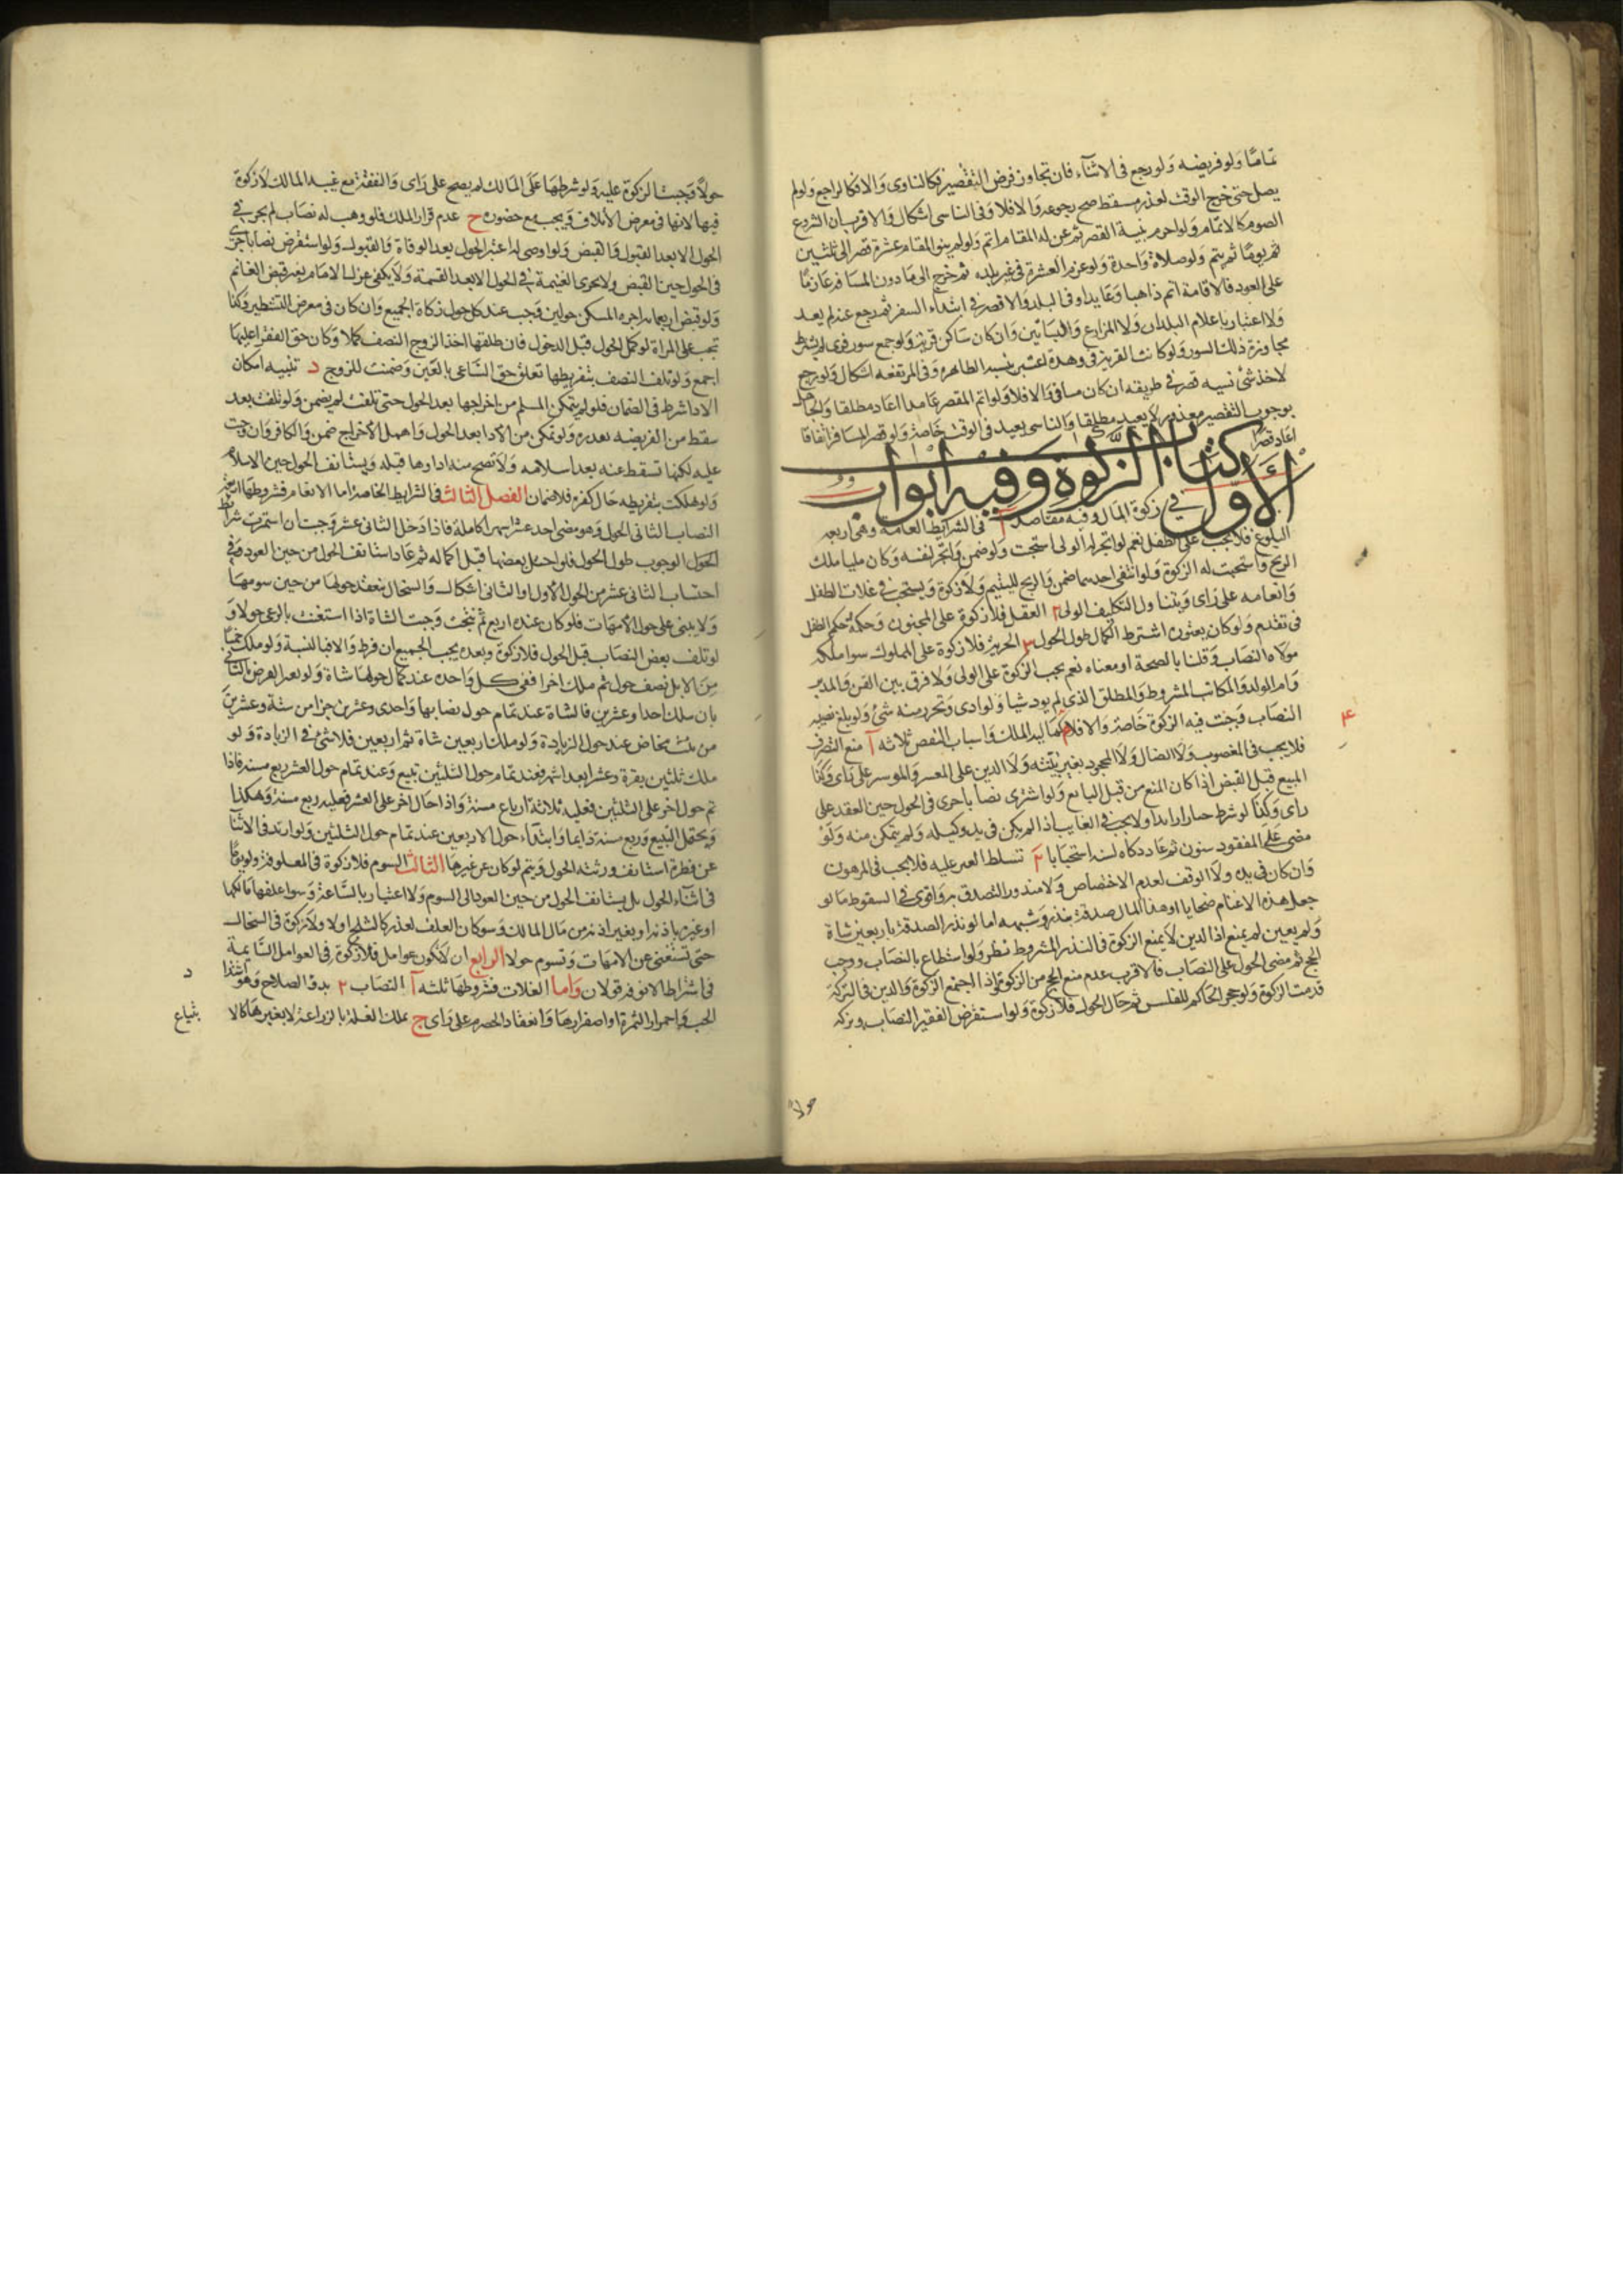 تمامًا ولو فريضه ولو رجع فى الاثناء فان تجاوز فرض التقصير فكالناوى والا فكالراجع ولو لم
يصل حتى خرج الوقت لعذر مسقط صح رجوعه والا فلا وفى الناسى اشكال والاقرب ان الشروع
الصوم كالاتمام ولو احرم بنية القصر ثم عن له المقام اتم ولو لم ينو المقام عشرة قصر الى ثلثين
ثم يومًا ثم يتم ولو صلاة واحدة ولو عزم العشرة فى غير بلده ثم خرج الى ما دون المسافر عازمًا
على العود فالاقامة اتم ذاهبا وعايدا وفى البلد والا قصر فى ابتداء السفر ثم رجع عنه لم يعد
ولا اعتبار باعلام البلدان ولا المزارع والبساتين وان كان ساكن قرية ولو جمع سور قرى لم يشترط
مجاوزة ذلك السور ولو كانت القرية فى وهدة اعتبر بنسبه الظاهره وفى المرتفعه اشكال ولو رجع
لاخذ شئ نسيه قصر فى طريقه ان كان مسافة والا فلا ولو اتم المقصر عامدا اعاد مطلقا والجاهل
بوجوب التقصير معذور لا يعيد مطلقا والناسى يعيد فى الوقت خاصة ولو قصر المسافر اتفاقا
اعاد قصرًا
كتاب الزكوة وفيه ابواب
الاول
فى زكوة المال وفيه مقاصد آ فى الشرايط العامة وهى اربعه
البلوغ فلا يجب على الطفل نعم لو اتجر له الولى استحبت ولو ضمن واتجر لنفسه وكان مليا ملك
الربح واستحبت له الزكوة ولو انتفى احدهما ضمن والربح لليتيم ولا زكوة ويستحب فى غلات الطفل
وانعامه على راى ويتناول التكليف الولى ٢ العقل فلا زكوة على المجنون وحكمه حكم الطفل
فى تقدم ولو كان يعتوره اشترط الكمال طول الحول ٣ الحرية فلا زكوة على المملوك سوا ملكه
مولاه النصاب وقلنا بالصحة او معناه نعم يجب الزكوة على الولى ولا فرق بين القن والمدبر
وام الولد والمكاتب المشروط والمطلق الذى لم يود شيا ولو ادى وتحرر منه شئ ولو بلغ نصيبه
النصاب وجبت فيه الزكوة خاصة والا فلا كماليه الملك واسباب النقص ثلاثه آ منع التصرف
٤
فلا يجب فى المغصوب ولا الضال ولا المجحود بغير بينته ولا الدين على المعسر والموسر على راى وكذا
المبيع قبل القبض اذا كان المنع من قبل البايع ولو اشترى نصابا جرى فى الحول حين العقد على
راى وكذا لو شرط خيارا زايدا ولا يجب فى الغايب اذا لم يكن فى يد وكيله ولم يتمكن منه ولو
مضى على المفقود سنون ثم عاد زكاه لسنه استحبابا ٢ تسلط الغير عليه فلا يجب فى المرهون
وان كان فى يده ولا الوقف لعدم الاختصاص ولا منذور التصدق به واقوى فى السقوط ما لو
جعل هذه الاغنام ضحايا او هذا المال صدقة بنذر وشبهه اما لو نذر الصدقة باربعين شاة
ولم يعين لم يمنع اذا الدين لا يمنع الزكوة فى النذر المشروط نظر ولو استطاع بالنصاب ووجب
الحج ثم مضى الحول على النصاب فالاقرب عدم منع الحج من الزكوة واذا اجتمع الزكوة والدين فى التركة
قدمت الزكوة ولو حجر الحاكم للفلس ثم حال الحول فلا زكوة ولو استقرض الفقير النصاب وتركه
حولاً
حولاً وجبت الزكوة عليه ولو شرطها على المالك لم يصح على راى والنفقة مع غيبه المالك لا زكوة
فيها لانها فى معرض الاتلاف ويجب مع حضوره ح عدم قرار الملك فلو وهب له نصاب لم يجر فى
الحول الا بعد القبول والقبض ولو اوصى له اعتبر الحول بعد الوفاة والقبول ولو استقرض نصابا جرى
فى الحول حين القبض ولا تجرى الغنيمة فى الحول الا بعد القسمة ولا يكفى عزل الامام بغير قبض الغانم
ولو قبض اربعمائه اجره المسكن حولين وجب عند كل حول زكاة الجميع وان كان فى معرض التشطير وكذا
تجب على المراة لو كمل الحول قبل الدخول فان طلقها اخذ الزوج النصف كملا وكان حق الفقرا عليها
اجمع ولو تلف النصف بتفريطها تعلق حق الساعى بالعين وضمنت للزوج د تنبيه امكان
الادا شرط فى الضمان فلو لم يتمكن المسلم من اخراجها بعد الحول حتى تلفت لم يضمن ولو تلف بعد
سقط من الفريضه بعدره ولو تمكن من الادا بعد الحول واهمل الاخراج ضمن والكافر وان وجبت
عليه لكنها تسقط عنه بعد اسلامه ولا تصح منه اداوها قبله ويستانف الحول حين الاسلام
ولو هلكت بتفريطه حال كفره فلا ضمان الفصل الثالث فى الشرايط الخاصة اما الانعام فشروطها اربعة
النصاب الثانى الحول وهو مضى احد عشر شهرا كاملة فاذا دخل الثانى عشر وجبت ان استمرت شرايط
الحول الوجوب طول الحول فلو اختل بعضها قبل اكماله ثم عاد استانف الحول من حين العود وفى
احتساب الثانى عشر من الحول الاول او الثانى اشكال والسخال ينعقد حولها من حين سومها
ولا يبنى على حول الامهات فلو كان عنده اربع ثم نتجت وجبت الشاة اذا استغنت بالرعى حولا و
لو تلف بعض النصاب قبل الحول فلا زكوة وبعده يجب الجميع ان فرط والا فبالنسبة ولو ملك خمسًا
من الابل نصف حول ثم ملك اخرا ففى كل واحده عند كمال حولها شاة ولو تغير الفرض بالثانى
بان ملك احدا وعشرين فالشاة عند تمام حول نصابها واحدى وعشرين جزا من ستة وعشرين
من بنت مخاض عند حول الزيادة ولو ملك اربعين شاة ثم اربعين فلا شئ فى الزيادة ولو
ملك ثلثين بقرة وعشرا بعد اشهر فعند تمام حول الثلثين تبيع وعند تمام حول العشر ربع مسنة فاذا
تم حول اخر على الثلثين فعليه ثلاثة ارباع مسنة واذا حال اخر على العشر فعليه ربع مسنة وهكذا
ويحتمل التبيع وربع مسنة دايما وابتداء حول الاربعين عند تمام حول الثلثين ولو ارتد فى الاثنا
عن فطرة استانف ورثته الحول ويتم لو كان عن غيرها الثالث السوم فلا زكوة فى المعلوفة ولو يومًا
فى اثناء الحول بل يستانف الحول من حين العود الى السوم ولا اعتبار بالساعة وسوا علفها مالكها
او غيره باذنه او بغير اذنه من مال المالك وسو كان العلف لعذر كالثلج او لا ولا زكوة فى السخال
حتى تستغنى عن الامهات وتسوم حولا الرابع ان لا تكون عوامل فلا زكوة فى العوامل السايمة
فى اشتراط الانوثة قولان واما الغلات فشروطها ثلثه آ النصاب ٢ بدو الصلاح وهو اشتداد
الحب واحمرار الثمرة او اصفرارها وانعقاد الحصرم على راى ج تملك الغلة بالزراعة لا بغيرها كالا
بتياع